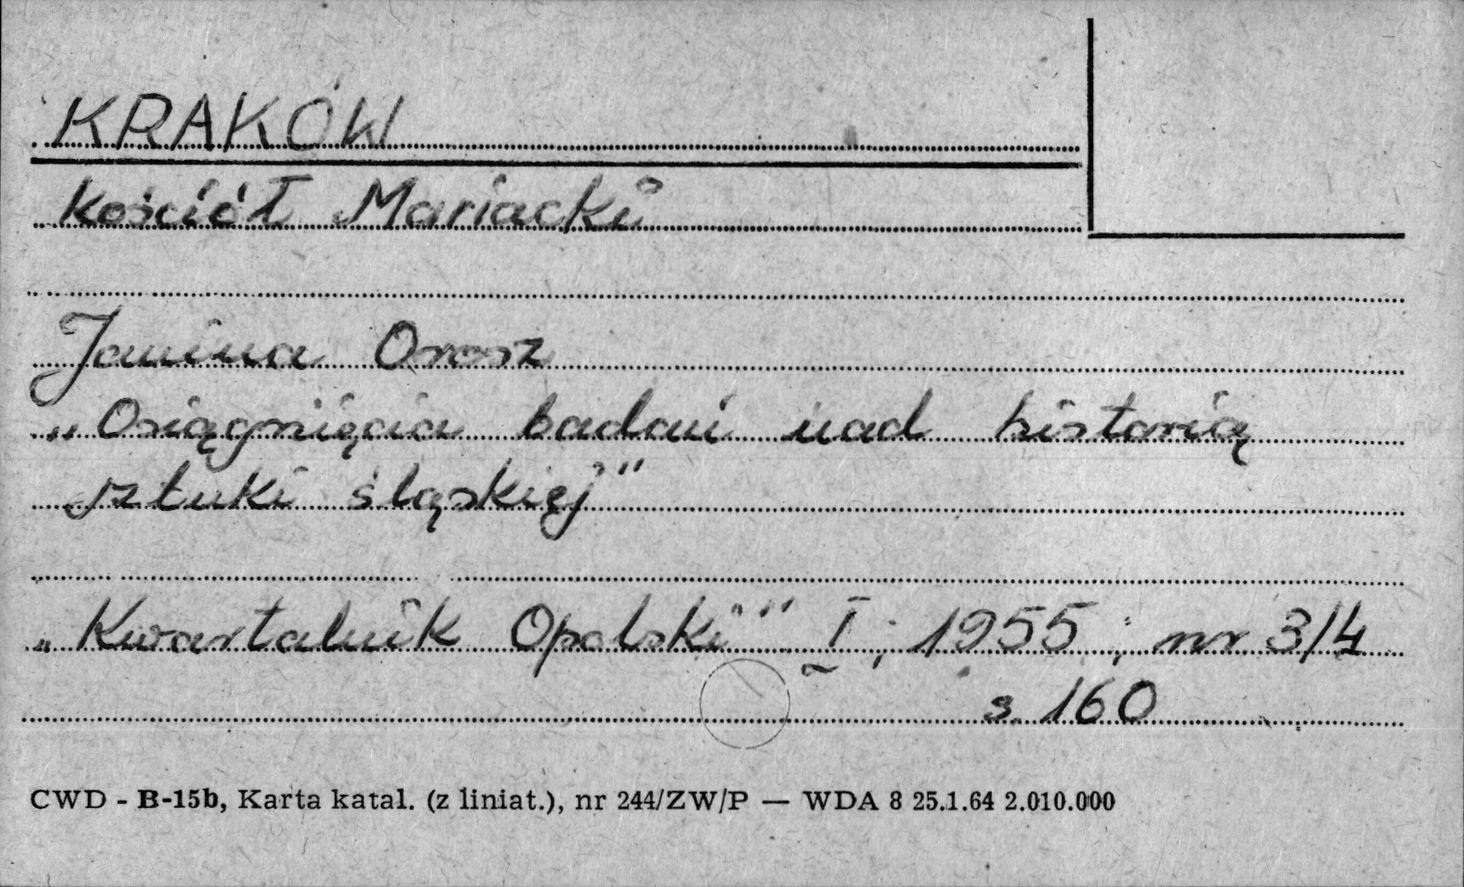 KRAKÓW
Kościół Mariacki
Janina Orosz
„Osiągnięcia badań nad historią
sztuki śląskiej"
„Kwartalnik Opolski" I; 1955; nr 3/4
s. 160
CWD - B-15b, Karta katal. (z liniat.), nr 244/ZW/P — WDA 8 25.1.64 2.010.000